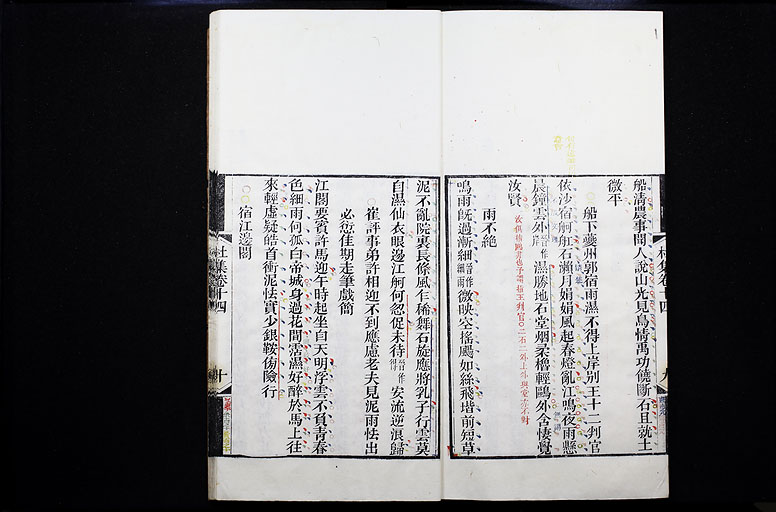 船清農事聞人說山光見鳥情禹功饒斷石且就土
微平
船下夔州郭宿雨濕不得上岸別王十二判官
依沙宿舸船石瀨月娟娟風起春燈亂江鳴夜雨懸
晨鐘雲外濕勝地石堂烟柔櫓輕鷗外含悽覺
汝賢
雨不絕
鳴雨既過漸細微映空搖颺如絲飛堦前短草
泥不亂院裏長條風乍稀舞石旋應將乳子行雲莫
自濕仙衣眼邊江舸何怱促未待安流逆浪歸
崔評事弟許相迎不到應慮老夫見泥雨怯出
必愆佳期走筆戲簡
江閣要賓許馬迎午時起坐自天明浮雲不負青春
色細雨何孤白帝城身過花間霑濕好醉於馬上往
來輕虛疑皓首衝泥怯實少銀鞍傍險行
宿江邊閣
杜集卷十四
十